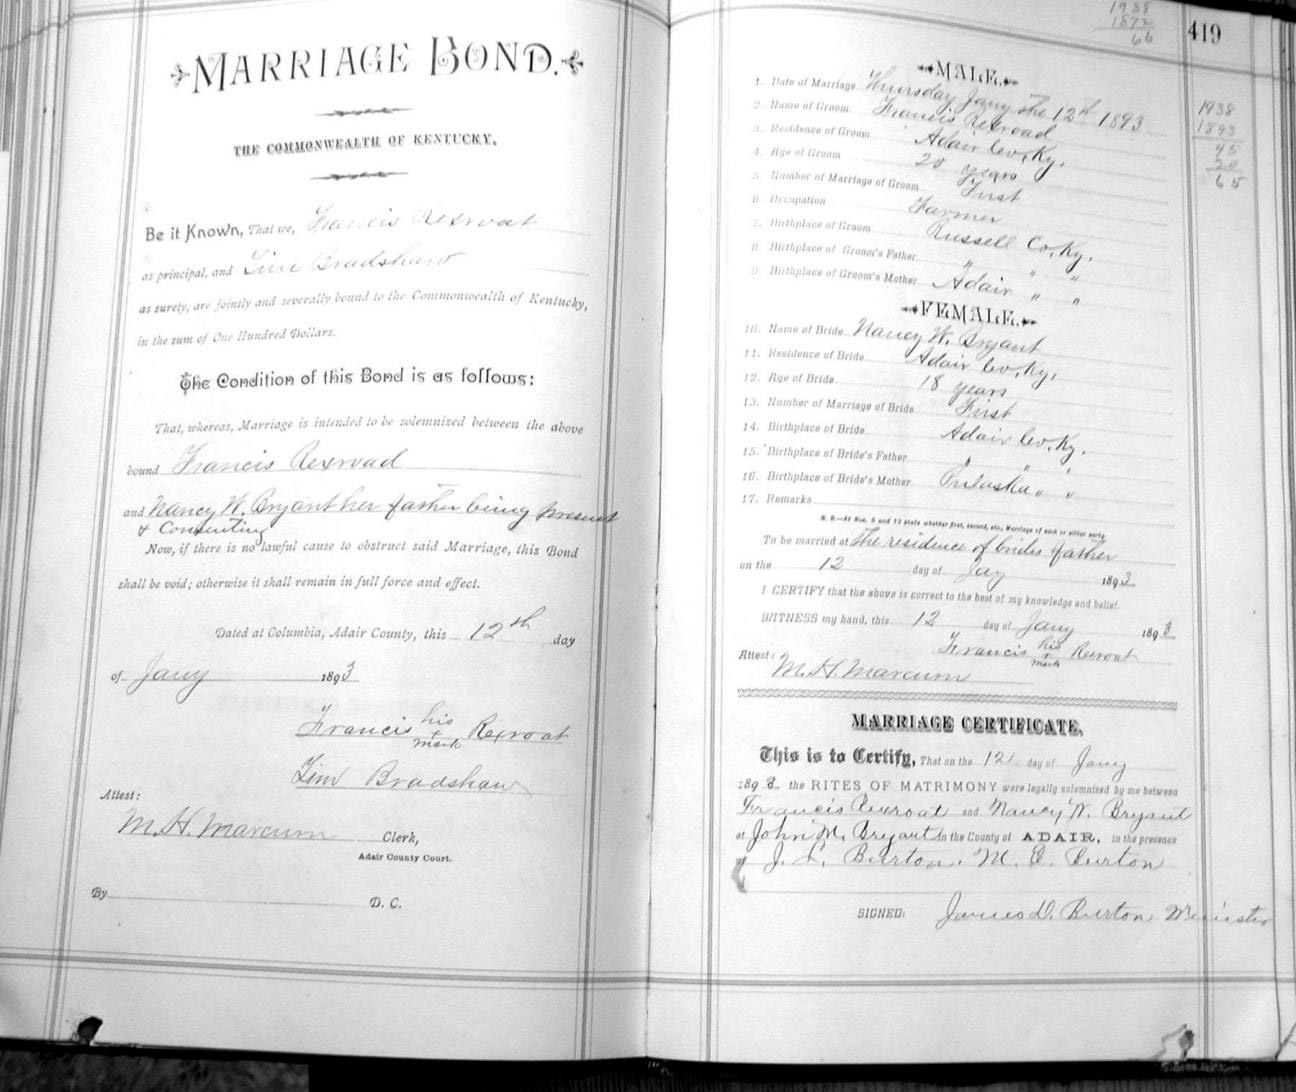 MARRIAGE BOND.
THE COMMONWEALTH OF KENTUCKY.
Be it Known, That we, Francis Rexroat
as principal, and Tim Bradshaw
as surety, are jointly and severally bound to the Commonwealth of Kentucky,
in the sum of One Hundred Dollars.
The Condition of this Bond is as follows:
That, whereas, Marriage is intended to be solemnized between the above
bound Francis Rexroad
and Nancy W. Bryant her father being present
& Consenting
Now, if there is no lawful cause to obstruct said Marriage, this Bond
shall be void; otherwise it shall remain in full force and effect.
Dated at Columbia, Adair County, this 12th day
of Jany 1893
Francis his x mark Rexroat
Tim Bradshaw
Attest:
M. H. Marcum Clerk,
Adair County Court.
By D. C.
1938
1872
66
419
MALE.
1. Date of Marriage Thursday Jany the 12th 1893
2. Name of Groom. Francis Rexroad
3. Residence of Groom Adair Co, Ky.
4. Age of Groom 20 years
5. Number of Marriage of Groom First
6. Occupation Farmer
7. Birthplace of Groom Russell Co, Ky.
8. Birthplace of Groom's Father " " "
9. Birthplace of Groom's Mother Adair " "
1938
1893
45
20
65
FEMALE.
10. Name of Bride Nancy W. Bryant
11. Residence of Bride Adair Co, Ky,
12. Age of Bride 18 years
13. Number of Marriage of Bride First
14. Birthplace of Bride Adair Co, Ky.
15. Birthplace of Bride's Father " " "
16. Birthplace of Bride's Mother Pulaska " "
17. Remarks
N. B.—At Nos. 5 and 13 state whether first, second, etc., Marriage of each or either party.
To be married at the residence of brides father
on the 12 day of Jay 1893
I CERTIFY that the above is correct to the best of my knowledge and belief.
WITNESS my hand, this 12 day of Jany 1893
Francis his x mark Rexroat
Attest: M. H. Marcum
MARRIAGE CERTIFICATE.
This is to Certify, That on the 12 day of Jany
1893 the RITES OF MATRIMONY were legally solemnized by me between
Francis Rexroat and Nancy W. Bryant
at John M. Bryant in the County of ADAIR, in the presence
of J. L. Burton. M. E. Burton
SIGNED: James D. Burton Minister